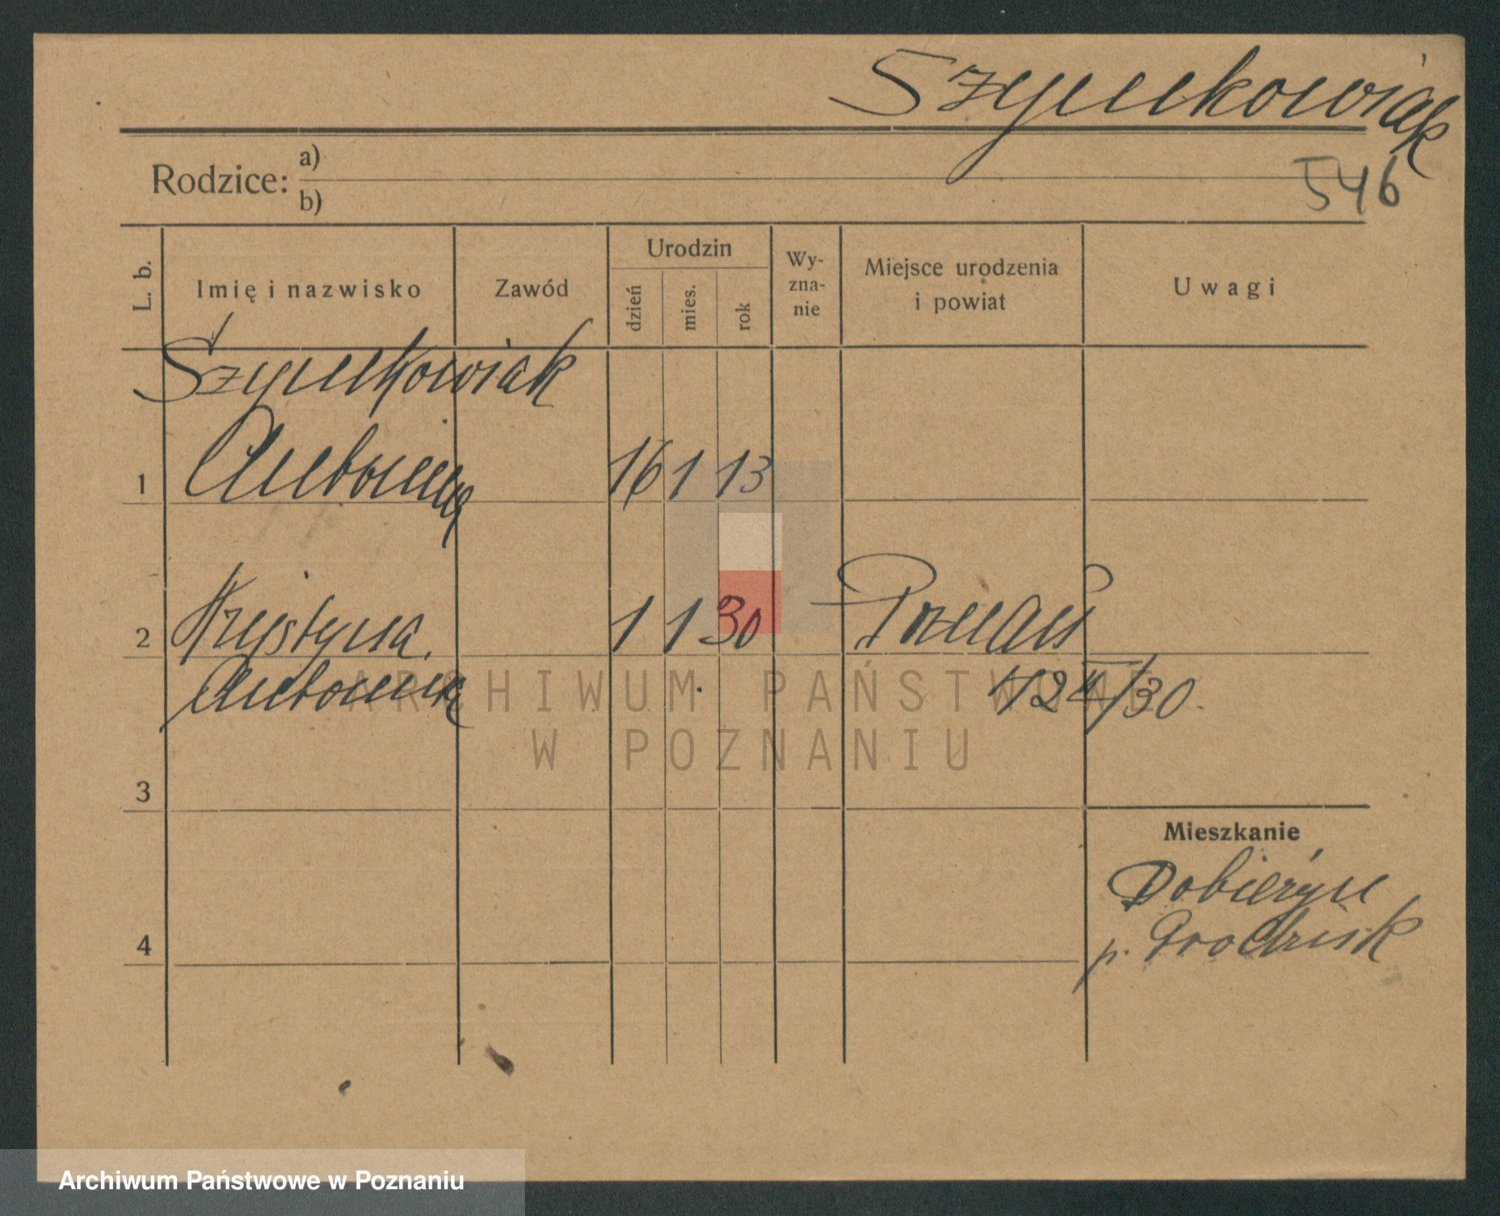 Szymkowiak
546
Rodzice: a)
b)
L. b.
Imię i nazwisko
Zawód
Urodzin
dzień
mies.
rok
Wy-
zna-
nie
Miejsce urodzenia
i powiat
Uwagi
Szymkowiak
1 Antonina 16 1 13
2 Krystyna 1 1 30 Poznań
Antonina
3
4
Mieszkanie
Dobieżyn
p. Grodzisk
ARCHIWUM PAŃSTWOWE
W POZNANIU
Archiwum Państwowe w Poznaniu